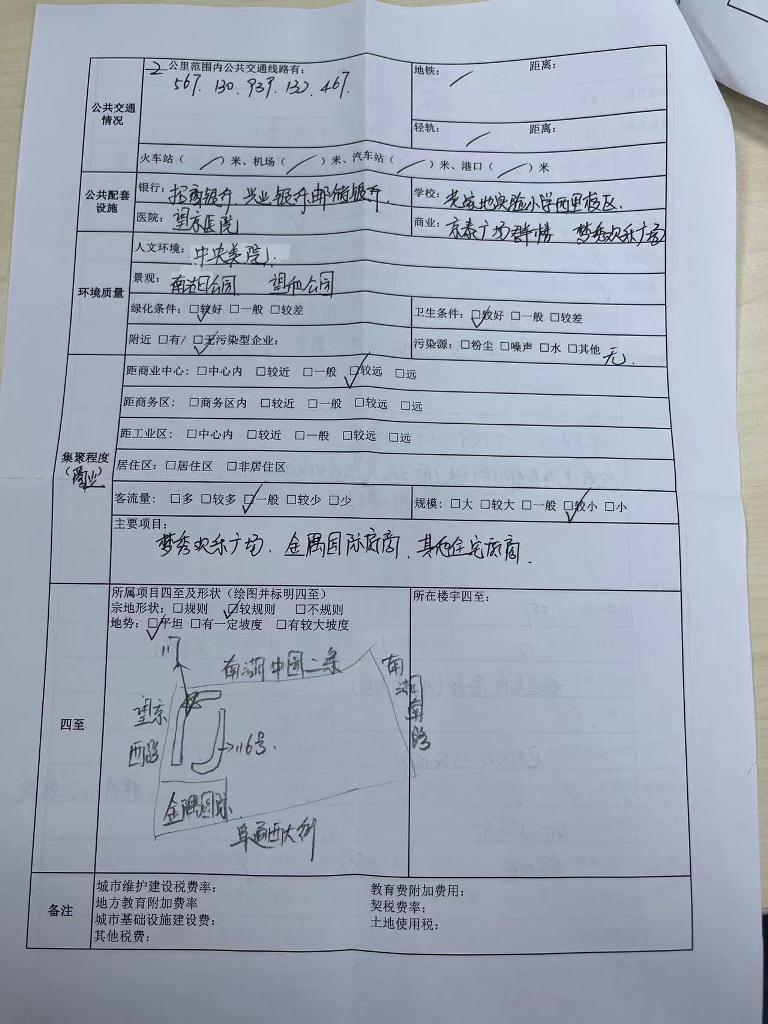 公共交通情况
2公里范围内公共交通线路有:
567. 130. 939. 132. 467.
地铁: / 距离:
轻轨: / 距离:
火车站( / )米、机场( / )米、汽车站( / )米、港口( / )米
公共配套设施
银行: 招商银行 兴业银行 邮储银行.
学校: 实验小学西里校区.
医院: 望京医院
商业: 京泰广场 梦秀欢乐广场
环境质量
人文环境: 中央美院
景观: 南湖公园 望和公园
绿化条件: ☑较好 □一般 □较差
卫生条件: ☑较好 □一般 □较差
附近 □有/ ☑无污染型企业:
污染源: □粉尘 □噪声 □水 □其他 无.
集聚程度(商业)
距商业中心: □中心内 □较近 □一般 ☑较远 □远
距商务区: □商务区内 □较近 □一般 □较远 □远
距工业区: □中心内 □较近 □一般 □较远 □远
居住区: □居住区 □非居住区
客流量: □多 □较多 ☑一般 □较少 □少
规模: □大 □较大 □一般 ☑较小 □小
主要项目:
梦秀欢乐广场、金隅国际底商、其他住宅底商.
四至
所属项目四至及形状(绘图并标明四至)
宗地形状: □规则 ☑较规则 □不规则
地势: ☑平坦 □有一定坡度 □有较大坡度
所在楼宇四至:
南湖中园二条
南湖南路
望京西路
116号.
金隅国际
阜通西大街
备注
城市维护建设税费率:
教育费附加费用:
地方教育附加费率
契税费率:
城市基础设施建设费:
土地使用税:
其他税费: